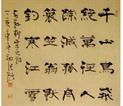 千山鳥飛
絕萬徑人
蹤滅孤舟
蓑笠翁獨
釣寒江雪